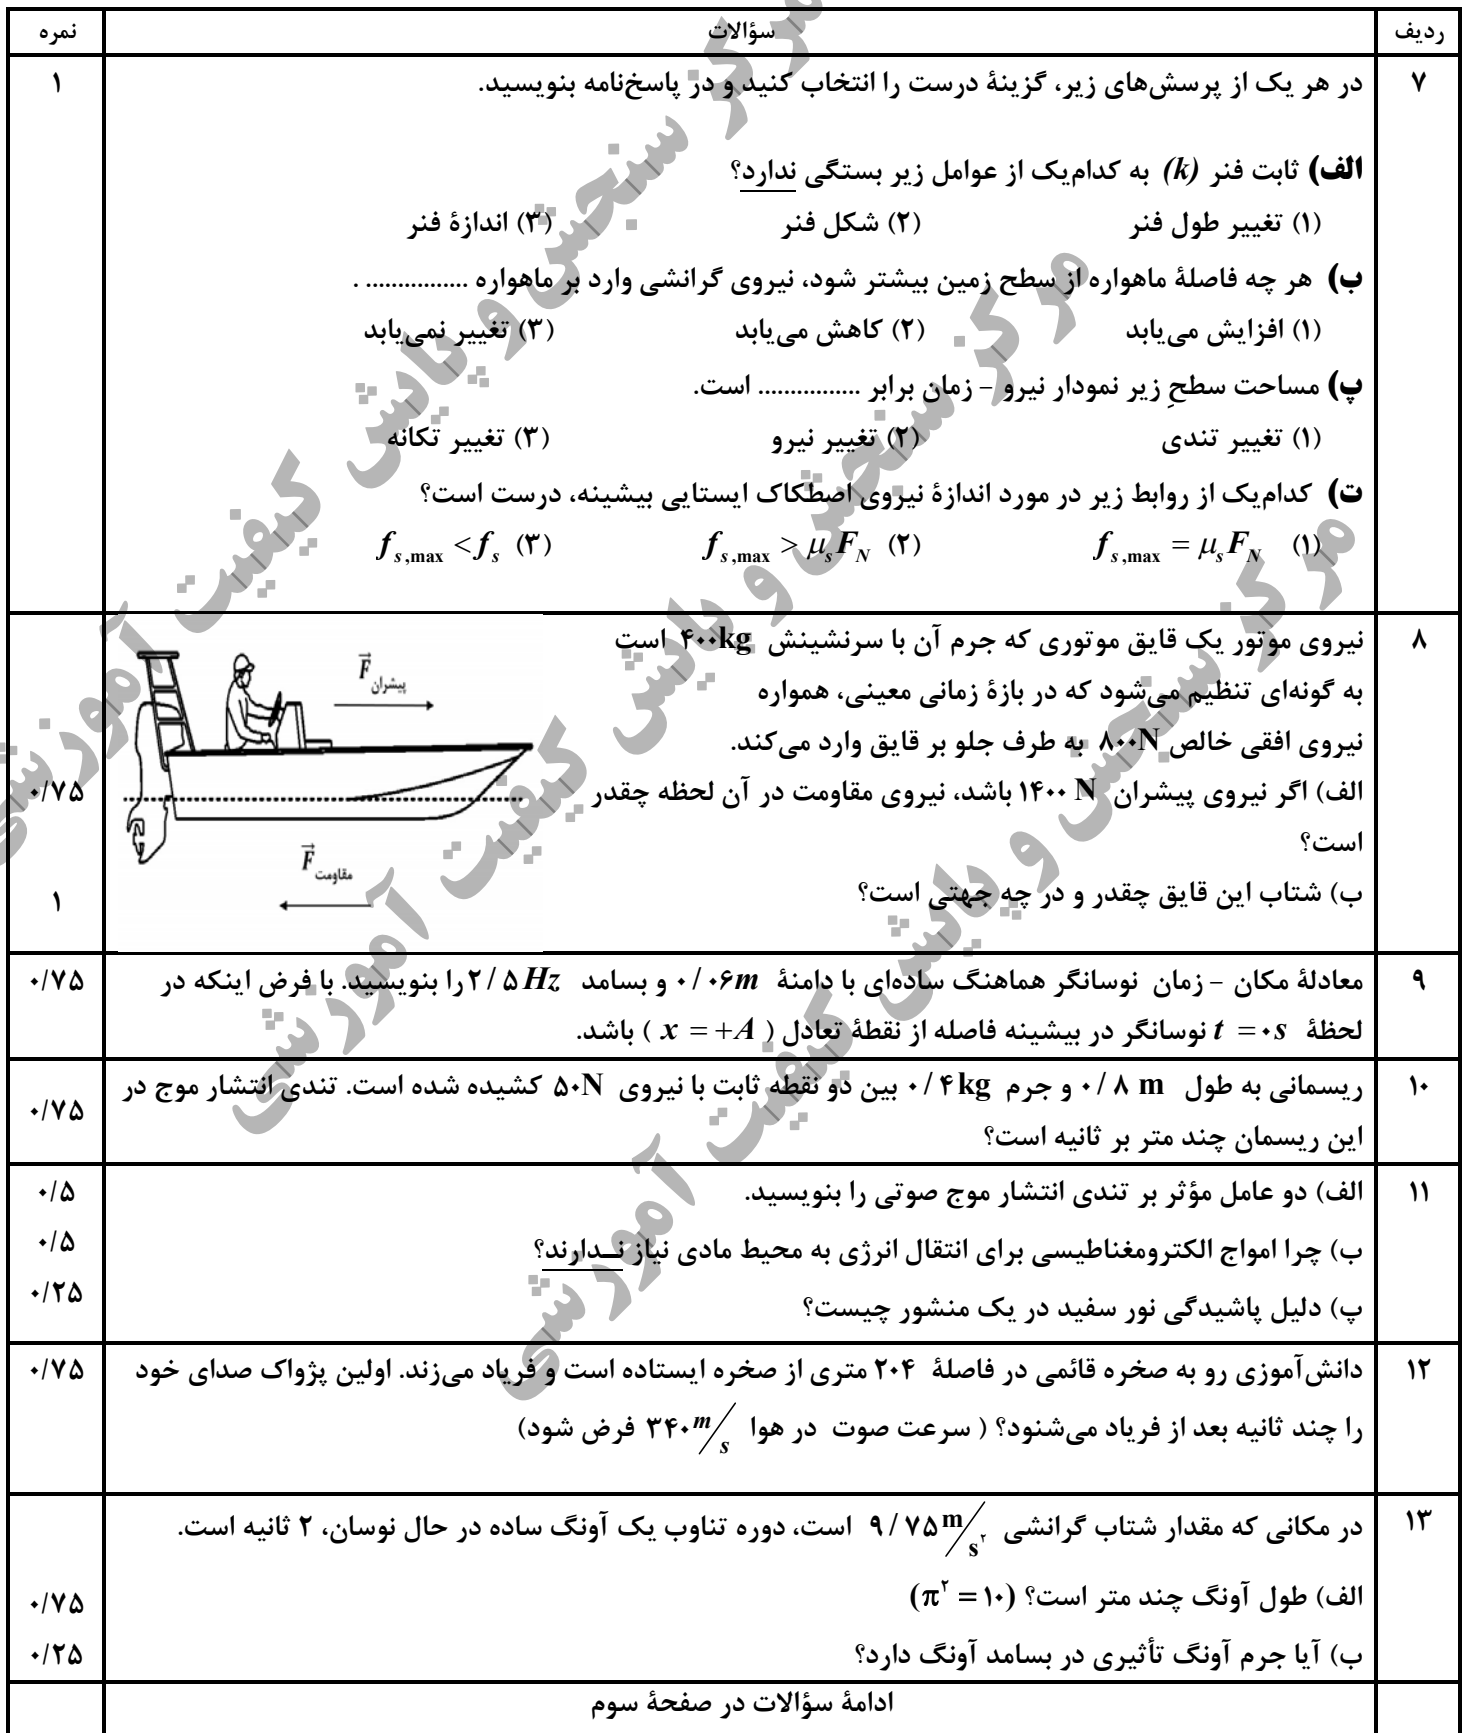 ردیف	سؤالات	نمره
۷	در هر یک از پرسش‌های زیر، گزینهٔ درست را انتخاب کنید و در پاسخ‌نامه بنویسید.	۱
الف) ثابت فنر (k) به کدام‌یک از عوامل زیر بستگی ندارد؟
(۱) تغییر طول فنر	(۲) شکل فنر	(۳) اندازهٔ فنر
ب) هر چه فاصلهٔ ماهواره از سطح زمین بیشتر شود، نیروی گرانشی وارد بر ماهواره ................ .
(۱) افزایش می‌یابد	(۲) کاهش می‌یابد	(۳) تغییر نمی‌یابد
پ) مساحت سطحِ زیر نمودار نیرو – زمان برابر ................ است.
(۱) تغییر تندی	(۲) تغییر نیرو	(۳) تغییر تکانه
ت) کدام‌یک از روابط زیر در مورد اندازهٔ نیروی اصطکاک ایستایی بیشینه، درست است؟
(۱) f_{s,max} = μ_s F_N	(۲) f_{s,max} > μ_s F_N	(۳) f_{s,max} < f_s
۸	نیروی موتور یک قایق موتوری که جرم آن با سرنشینش ۴۰۰kg است
به گونه‌ای تنظیم می‌شود که در بازهٔ زمانی معینی، همواره
نیروی افقی خالص ۸۰۰N به طرف جلو بر قایق وارد می‌کند.
الف) اگر نیروی پیشران ۱۴۰۰ N باشد، نیروی مقاومت در آن لحظه چقدر	۰/۷۵
است؟
ب) شتاب این قایق چقدر و در چه جهتی است؟	۱
F⃗ پیشران
F⃗ مقاومت
۹	معادلهٔ مکان – زمان نوسانگر هماهنگ ساده‌ای با دامنهٔ ۰/۰۶m و بسامد ۲/۵Hz را بنویسید. با فرض اینکه در	۰/۷۵
لحظهٔ t = ۰s نوسانگر در بیشینه فاصله از نقطهٔ تعادل ( x = +A ) باشد.
۱۰	ریسمانی به طول ۰/۸ m و جرم ۰/۴kg بین دو نقطه ثابت با نیروی ۵۰N کشیده شده است. تندی انتشار موج در	۰/۷۵
این ریسمان چند متر بر ثانیه است؟
۱۱	الف) دو عامل مؤثر بر تندی انتشار موج صوتی را بنویسید.	۰/۵
ب) چرا امواج الکترومغناطیسی برای انتقال انرژی به محیط مادی نیاز نــدارند؟	۰/۵
پ) دلیل پاشیدگی نور سفید در یک منشور چیست؟	۰/۲۵
۱۲	دانش‌آموزی رو به صخره قائمی در فاصلهٔ ۲۰۴ متری از صخره ایستاده است و فریاد می‌زند. اولین پژواک صدای خود	۰/۷۵
را چند ثانیه بعد از فریاد می‌شنود؟ ( سرعت صوت در هوا ۳۴۰m/s فرض شود)
۱۳	در مکانی که مقدار شتاب گرانشی ۹/۷۵m/s۲ است، دوره تناوب یک آونگ ساده در حال نوسان، ۲ ثانیه است.
الف) طول آونگ چند متر است؟ (π۲ = ۱۰)	۰/۷۵
ب) آیا جرم آونگ تأثیری در بسامد آونگ دارد؟	۰/۲۵
ادامهٔ سؤالات در صفحهٔ سوم
مرکز سنجش و پایش کیفیت آموزشی
مرکز سنجش و پایش کیفیت آموزشی
مرکز سنجش و پایش کیفیت آموزشی